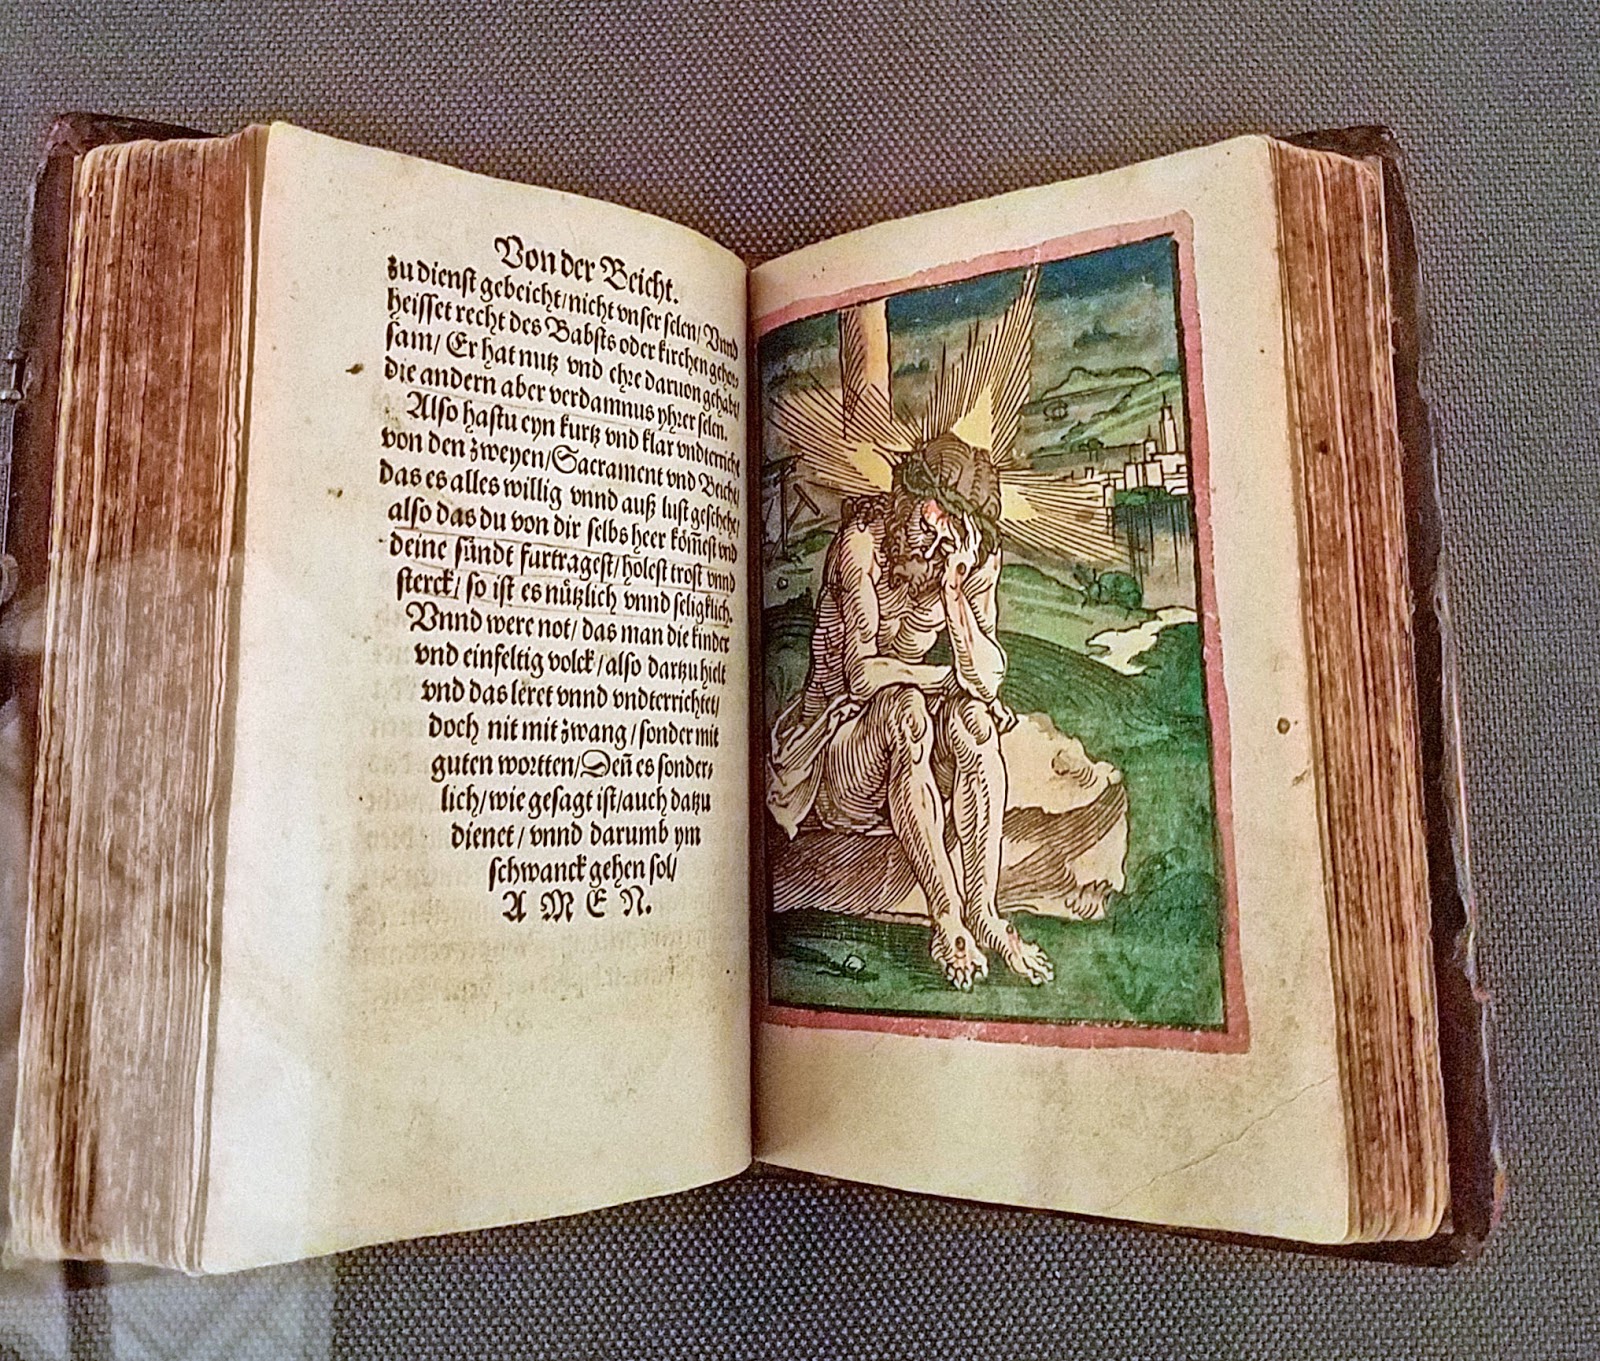 Von der Beicht.
zu dienst gebeicht/nicht vnser selen/ Vnnd
heisset recht des Babsts oder kirchen gehor⸗
sam/ Er hat nutz vnd ehre daruon gehabt/
die andern aber verdamnus yhrer selen.
Also hastu eyn kurtz vnd klar vndterricht
von den zweyen/Sacrament vnd Beicht/
das es alles willig vnnd auß lust geschehe/
also das du von dir selbs heer kom̃est vnd
deine sündt furtragest/holest trost vnnd
sterck/ so ist es nützlich vnnd seligklich.
Vnnd were not/ das man die kinder
vnd einfeltig volck/also dartzu hielt
vnd das leret vnnd vndterrichtet/
doch nit mit zwang/sonder mit
guten wortten/Deñ es sonder⸗
lich/wie gesagt ist/auch datzu
dienet/ vnnd darumb ym
schwanck gehen sol/
A M E N.